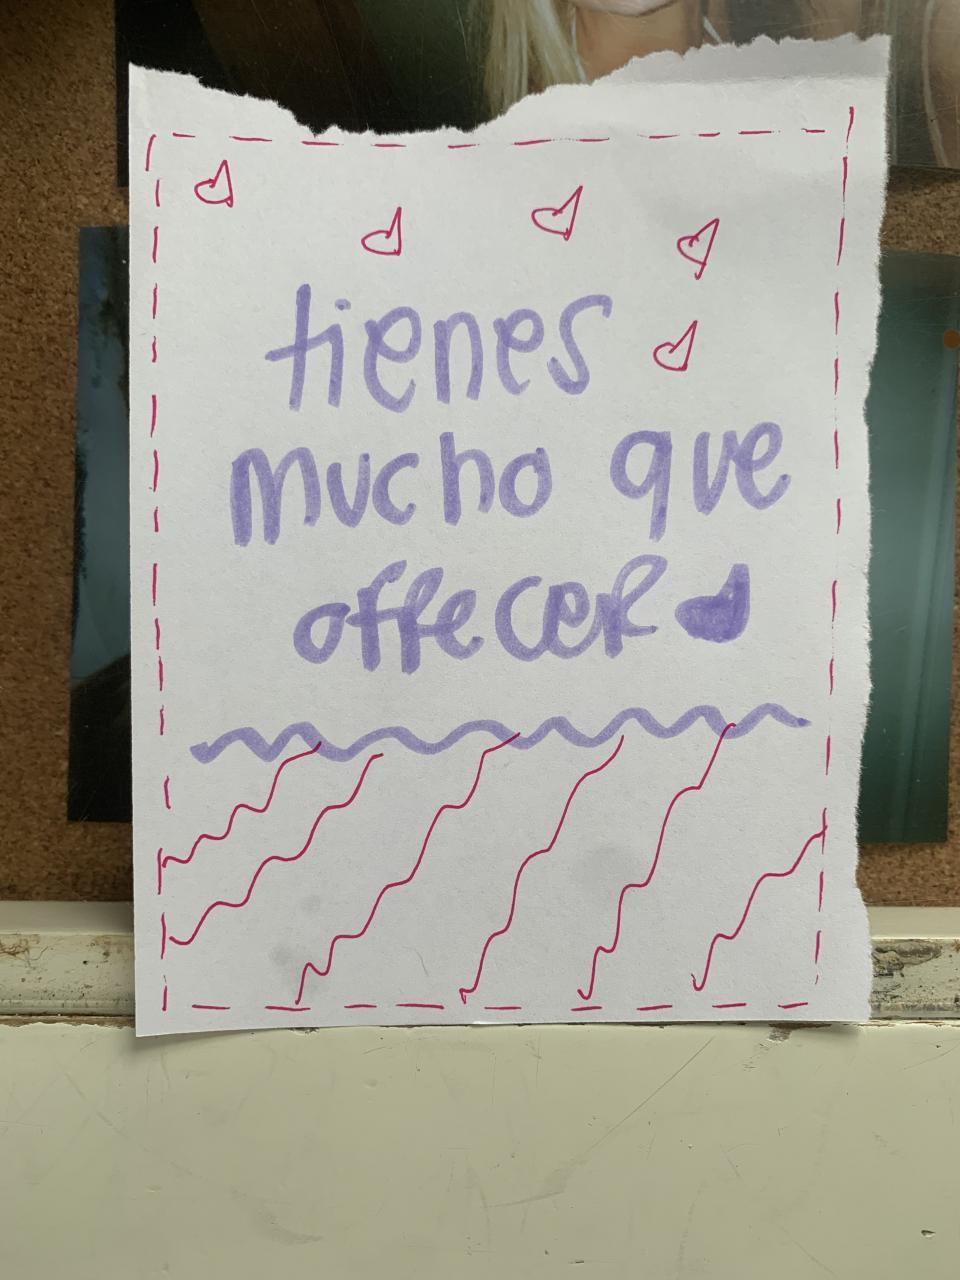 tienes
mucho que
ofrecer